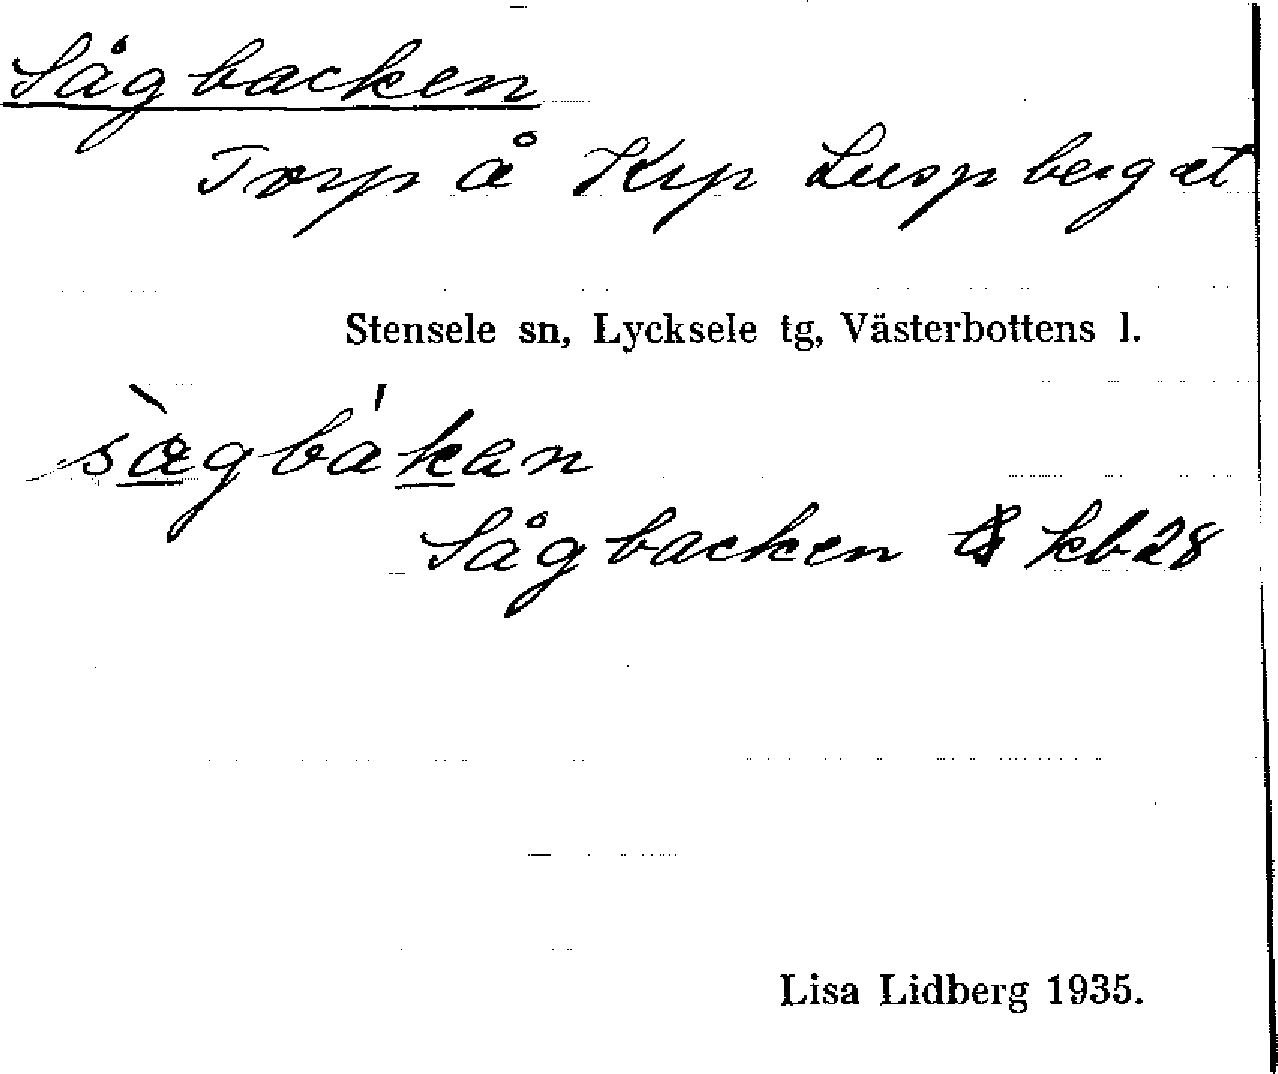 Sågbacken
Torp å Krp Luspberget
Stensele sn, Lycksele tg, Västerbottens l.
sὰgbákan
Sågbacken kb 28
Lisa Lidberg 1935.